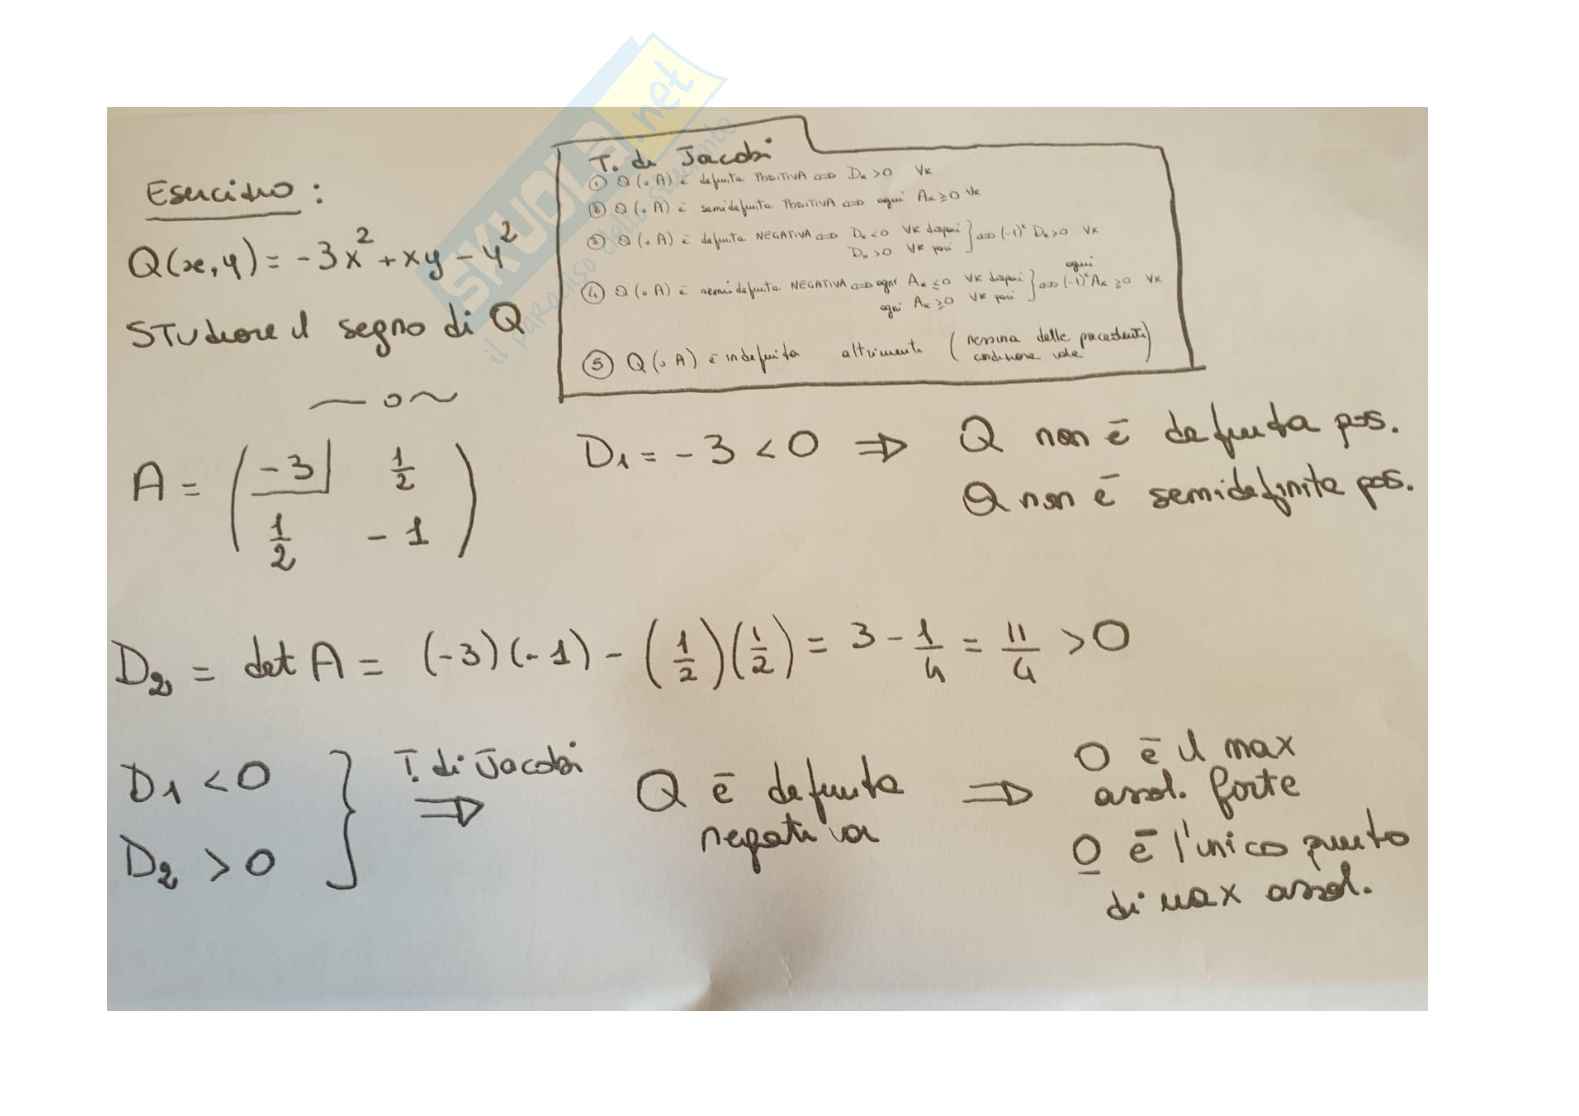 Esercizio :
Q(x,y) = -3x² + xy - y²
STUdiare il segno di Q
T. di Jacobi
① Q(·A) è definita POSITIVA ⇔ Dₖ > 0 ∀k
② Q(·A) è semidefinita POSITIVA ⇔ ogni Aₖ ≥ 0 ∀k
③ Q(·A) è definita NEGATIVA ⇔ Dₖ < 0 ∀k dispari } ⇔ (-1)ᵏ Dₖ > 0 ∀k
Dₖ > 0 ∀k pari
④ Q(·A) è semidefinita NEGATIVA ⇔ ogni Aₖ ≤ 0 ∀k dispari } ⇔ ogni (-1)ᵏ Aₖ ≥ 0 ∀k
ogni Aₖ ≥ 0 ∀k pari
⑤ Q(·A) è indefinita altrimenti ( nessuna delle precedenti
condizione vale )
A = ( -3 1/2
1/2 -1 )
D₁ = -3 < 0 ⇒ Q non è definita pos.
Q non è semidefinita pos.
D₂ = det A = (-3)(-1) - (1/2)(1/2) = 3 - 1/4 = 11/4 > 0
D₁ < 0
D₂ > 0
} T. di Jacobi ⇒
Q è definita
negativa
⇒ O è il max
assol. forte
O è l'unico punto
di max assol.
SKUOLA.net
il paradiso dello studente